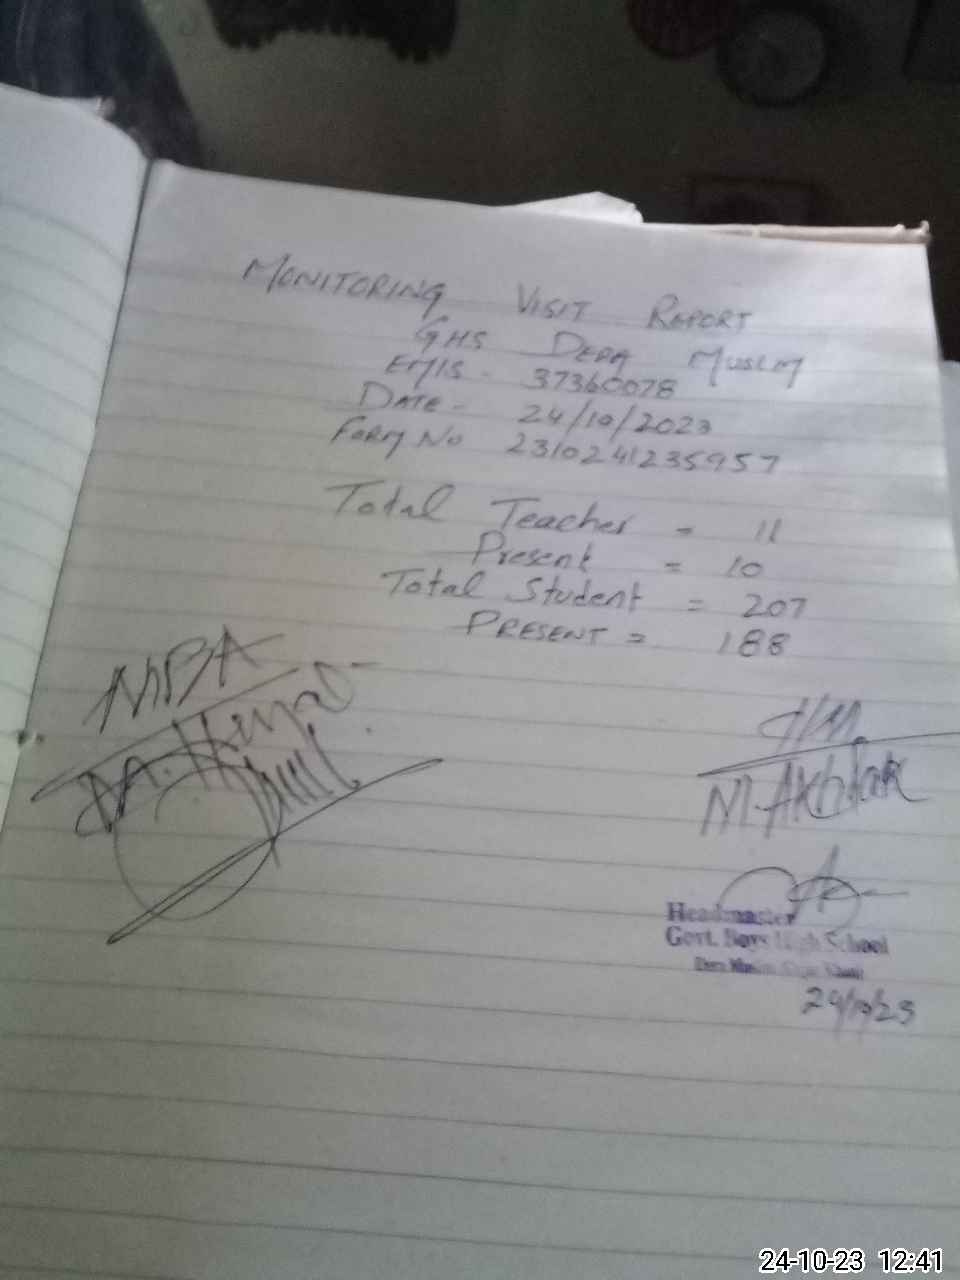 MONITORING VISIT REPORT
GHS DERA MUSLM
EMIS - 37360078
DATE - 24/10/2023
FORM NO 2310241235957
Total Teacher = 11
Present = 10
Total Student = 207
PRESENT = 188
HM
M. Akhtar
Headmaster
Govt. Boys High School
24/10/23
24-10-23 12:41